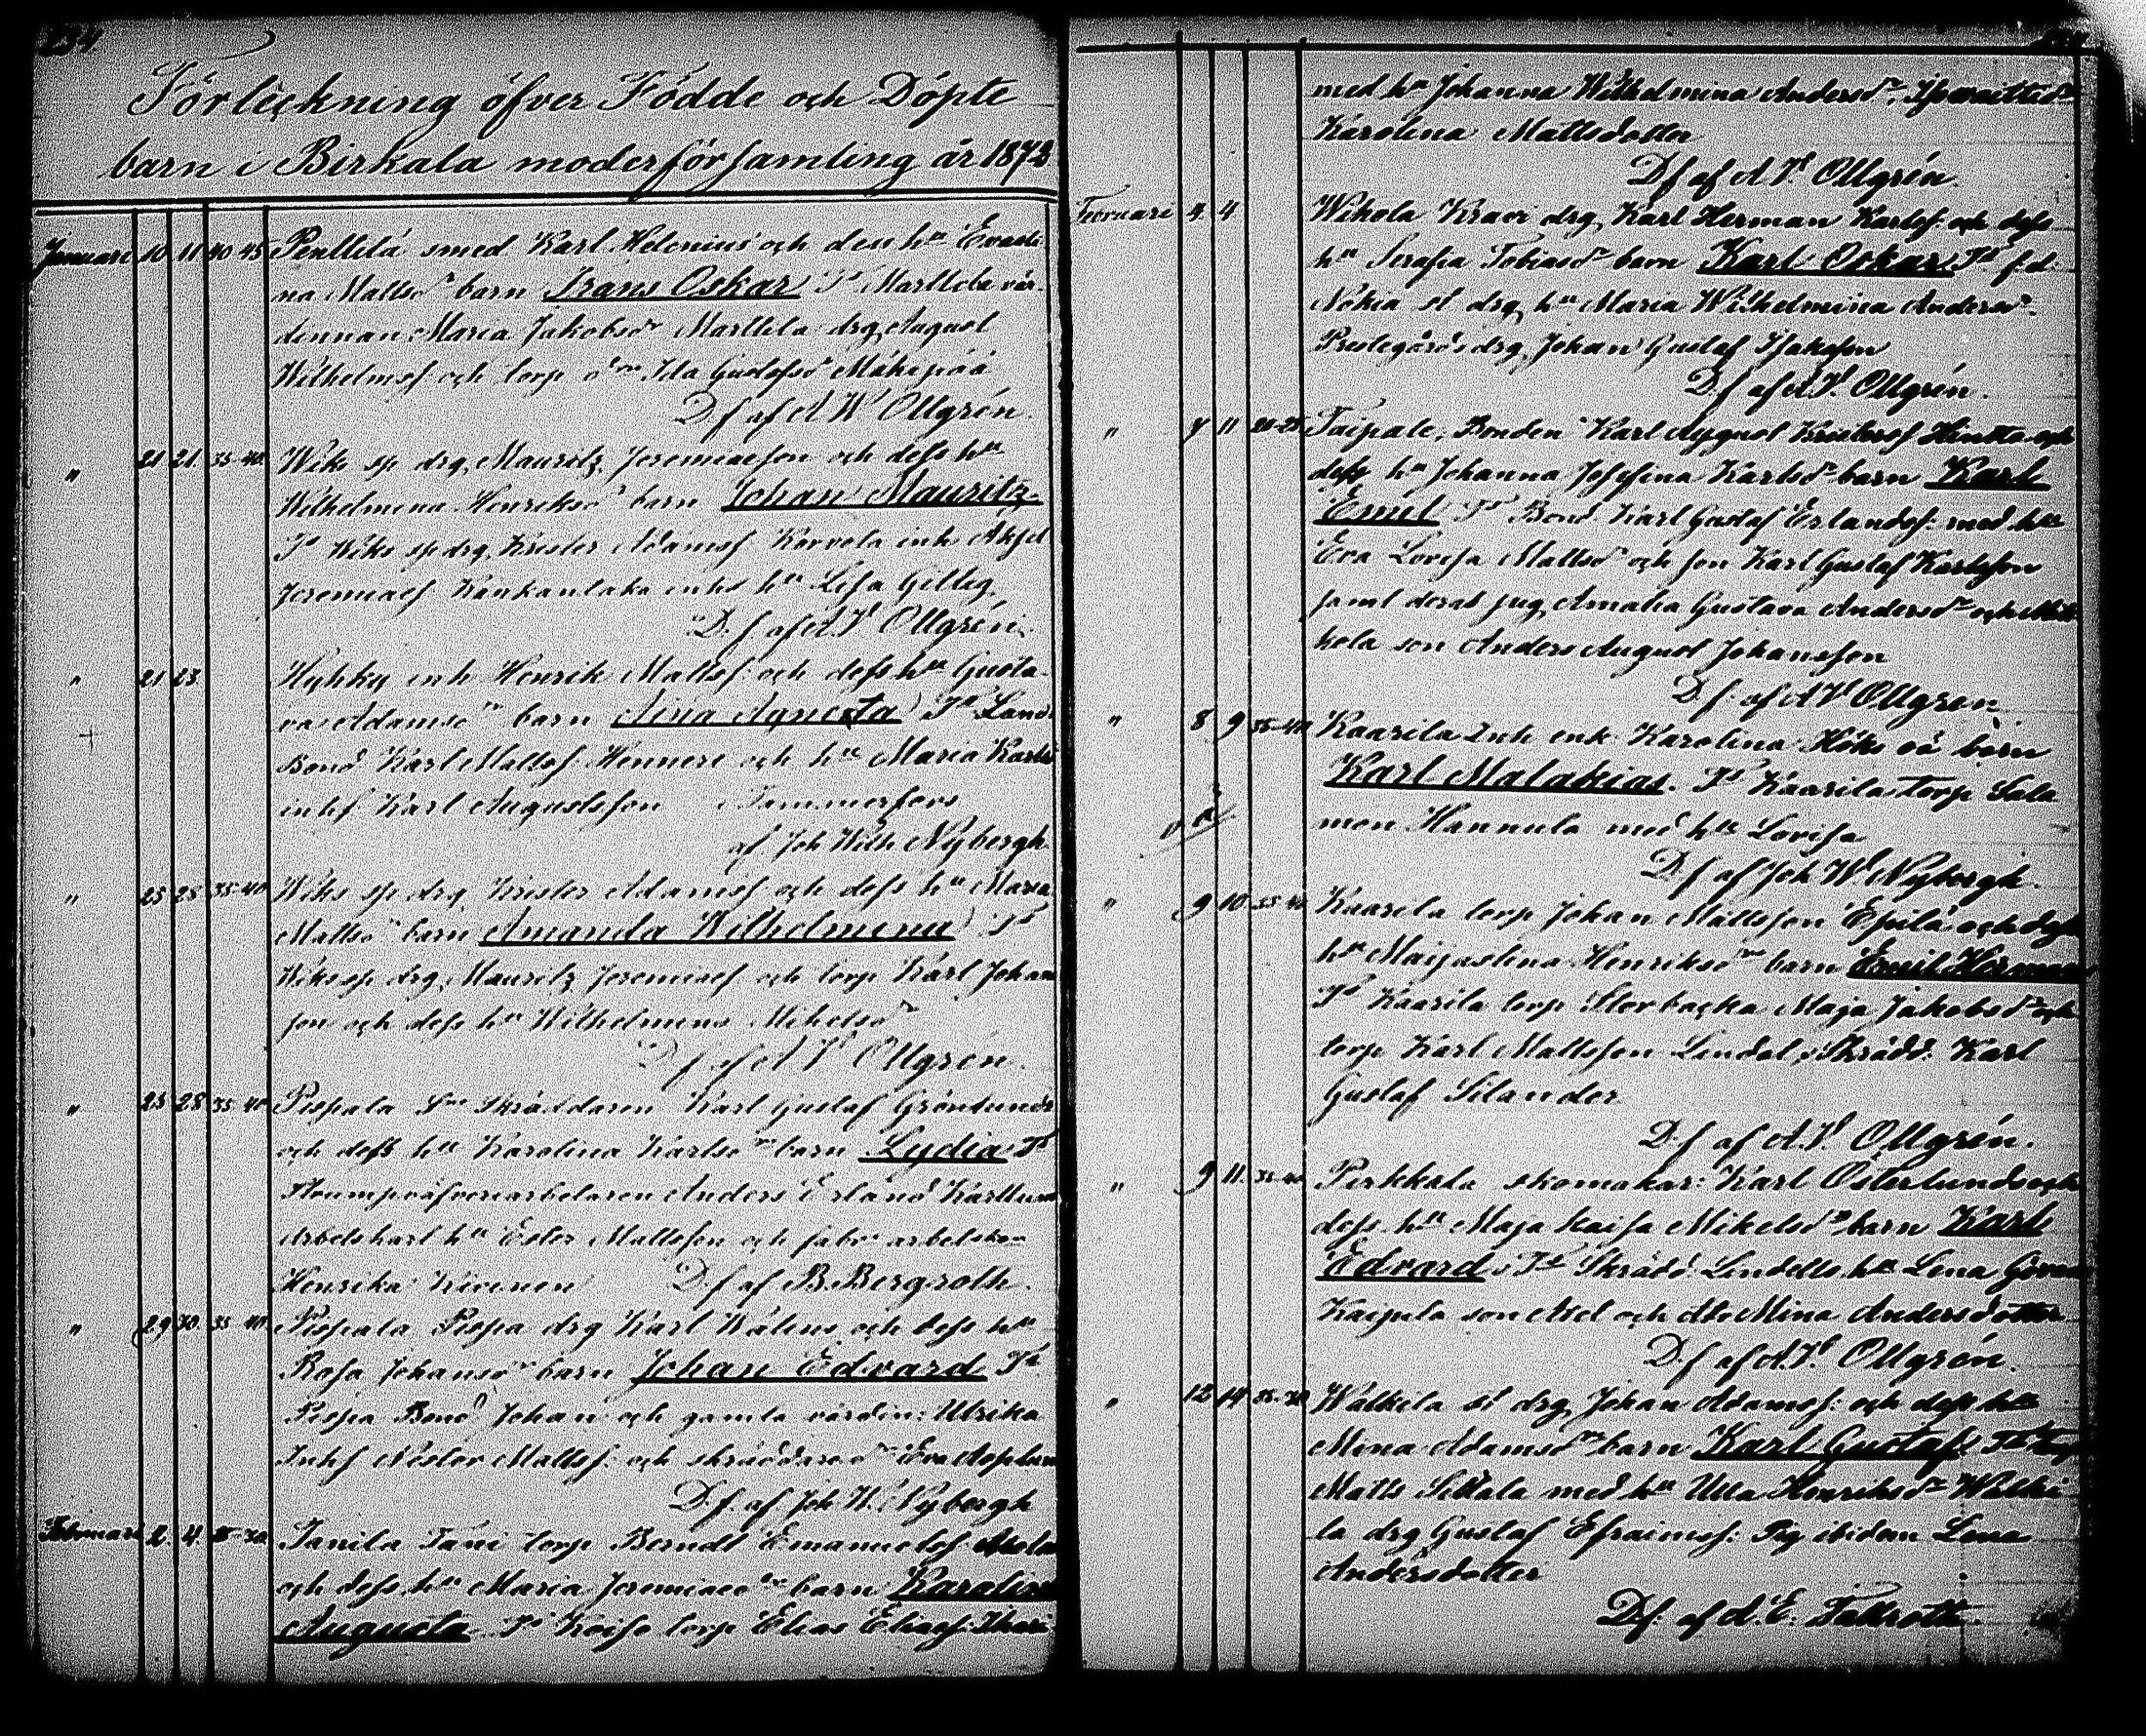 234
Förteckning öfver Födde och Döpte
barn i Birkala moderförsamling år 1873
Januari 10 11 40 45 Penttilä smed Karl Helenius och dess hu Evasti
na Mattsdr barn Frans Oskar Ts Marttila vär
dinnan Maria Jakobsdr Marttila drg August
Wilhelmsf och torp dr Ida Gustafsdr Mähipää
D.f af A W Ollgrén.
" 21 21 35-40 Wiks sp drg Mauritz Jeremiaesson och dess hu
Wilhelmina Henriksdr barn Johan Mauritz
Ts Wiks sp drg Krister Adamsf Korvola inh Aksel
Jeremiaesf Kankanlaka inhs hu Lisa Gillig
D.f af A.W Ollgrén.
" 21 23 Hyhky inh Henrik Mattsf: och dess hu Gusta
va Adamsdr barn Nina Agneta Ts Land
Bond Karl Mattsf Henneri och hu Maria Karls
inhs Karl Augustsson Tammerfors
af Joh Wilh Nybergh
" 25 28 35-40 Wiks sp drg Krister Adamsf och dess hu Maria
Mattsdr barn Amanda Wilhelmina Ts
Wiks sp drg Mauritz Jeremiaesf och torp Karl Johans
son och dess hu Wilhelmina Mikelsdr
D f af A W Ollgrén.
" 25 28 35-40 Pispala Skräddaren Karl Gustaf Grönlunds
och dess hu Karolina Karlsdr barn Lydia Ts
Strumpväfveriarbetaren Anders Erland Karttunen
Arbetskarl hu Ester Mattsson och fabr. arbetskan
Henrika Kivinen D.f af B. Bergroth.
" 29 30 35-40 Pispala Pispa drg Karl Walens och dess hu
Rosa Johansdr barn Johan Edvard Ts
Pispa Bond Johan och gamla värdin: Ulrika
Inhs Nestor Mattsf: och skräddare dr Eva Asplun
D.f. af Joh W. Nybergh
Februari 2. 4. 25-30 Tanila Tani torp Berndt Emanuelsf
och dess hu Maria Jeremiaedr barn Karolina
Augusta Ts Koisa torp Elias Eliasf:
med hu Johanna Wilhelmina Andersdr,
Karolina Mattsdotter
D f af A W. Ollgrén.
Februari 4 4 Wihola Kravi drg Karl Herman Karlsf: och dess
hu Serafia Tobiasdr barn Karl Oskar Ts f.d.
Nokia st drg hu Maria Wilhelmina Andersdr
Prestegårds drg Johan Gustaf Isaksson
D f af A W. Ollgrén.
" 7 11 20-25 Taipale, Bonden Karl August Kristersf Hintta och
dess hu Johanna Josefina Karlsdr barn Karl
Emil Ts Bond Karl Gustaf Erlandsf: med hu
Eva Lovisa Mattsdr och son Karl Gustaf Karlsson
samt deras pig Amalia Gustava Andersdr och
kola son Anders August Johansson
D f: af A W Ollgrén
" 8 9 35-40 Kaarila Inh enk Karolina Höks oä barn
Karl Malakias. Ts Kaarila torp Salo
mon Hannula med hu Lovisa
D f af Joh W. Nybergh.
" 9 10 35-40 Kaarila torp Johan Mattsson Epilä och dess
hu Maijastina Henriksdr barn Emil Herman
Ts Kaarila torp Storbacka Maja Jakobsdr och
torp Karl Mattsson Lindal, Skrädd: Karl
Gustaf Silander
D.f af A.W. Ollgrén.
" 9 11. 35-40 Pirkkala skomakar: Karl Österlunds och
dess hu Maja Kaisa Mikelsdr barn Karl
Edvard. Ts Skrädd. Lindells hu Lena
Kaipila son Axel och dr Mina Andersdotter
D.f af A.W. Ollgrén.
" 12 14 25-30 Walkila st drg Johan Adamsf: och dess hu
Mina Adamsdr barn Karl Gustaf Ts torp
Matts Sittala med hu Ulla Henriksdr Walki
la drg Gustaf Efraimsf: Pig ibidem Lena
Andersdotter
D.f: af A. E. Fallroth.